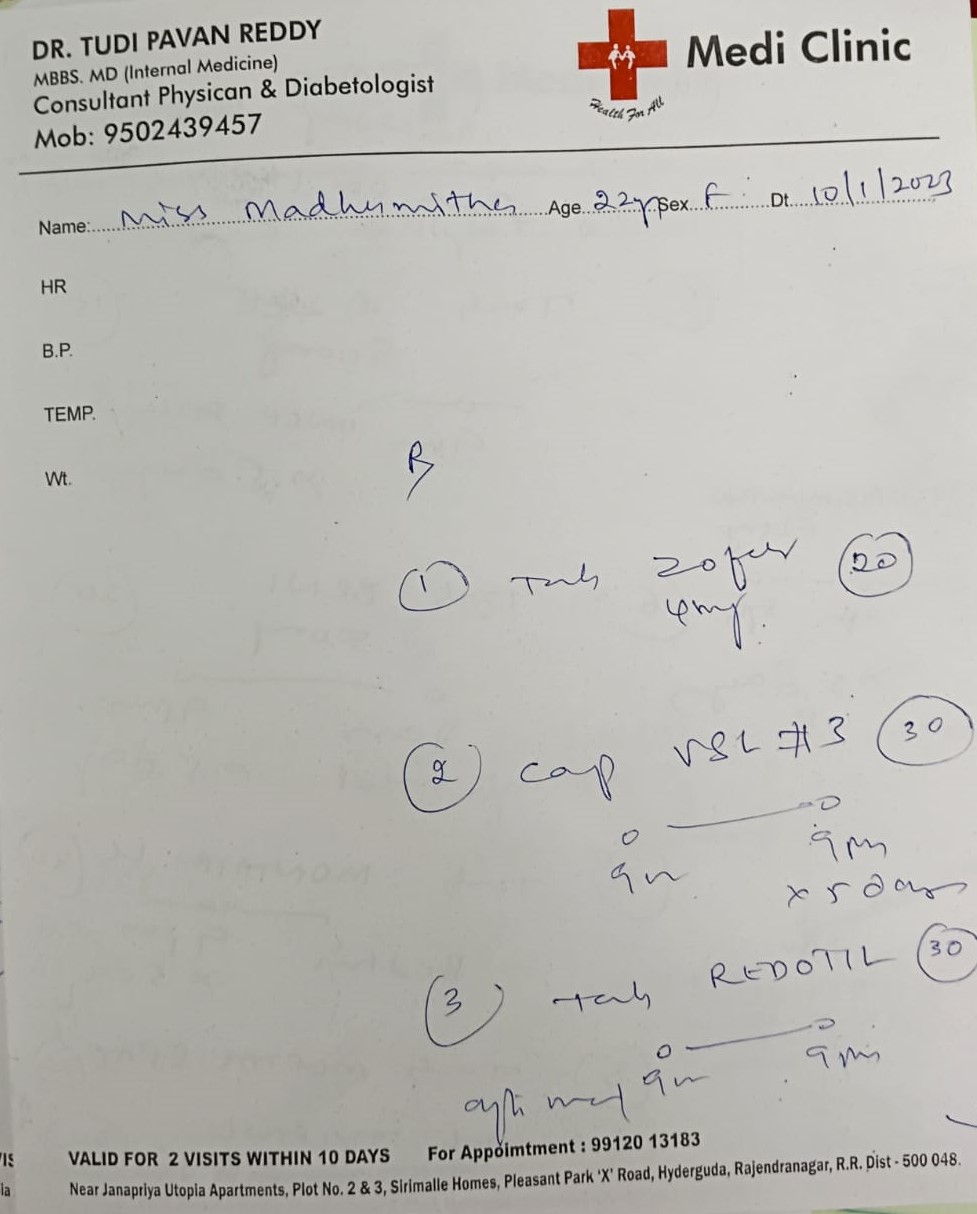 DR. TUDI PAVAN REDDY
MBBS. MD (Internal Medicine)
Consultant Physican & Diabetologist
Mob: 9502439457
Medi Clinic
Health For All
Name: Miss Madhumitha Age 22yr Sex F Dt. 10/1/2023
HR
B.P.
TEMP.
Wt.
℞
① Tab Zofer 20
4mg.
② Cap VSL #3 30
9am 9pm
x 5 days
③ Tab REDOTIL 30
9am 9pm
VALID FOR 2 VISITS WITHIN 10 DAYS For Appoimtment : 99120 13183
Near Janapriya Utopia Apartments, Plot No. 2 & 3, Sirimalle Homes, Pleasant Park 'X' Road, Hyderguda, Rajendranagar, R.R. Dist - 500 048.